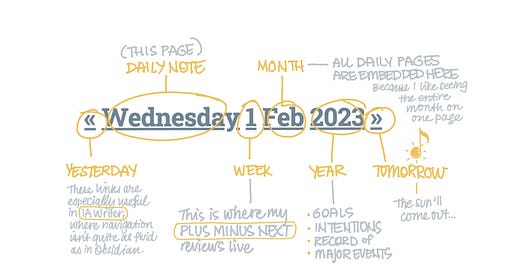 (THIS PAGE)
DAILY NOTE
MONTH
ALL DAILY PAGES
ARE EMBEDDED HERE
Because I like seeing
the entire
month on
one page
« Wednesday 1 Feb 2023 »
YESTERDAY
These links are
especially useful
in iA Writer,
where navigation
isn't quite as fluid
as in Obsidian.
WEEK
This is where my
PLUS MINUS NEXT
reviews live
YEAR
• GOALS
• INTENTIONS
• RECORD of
• MAJOR EVENTS
TOMORROW
The sun'll
come out...